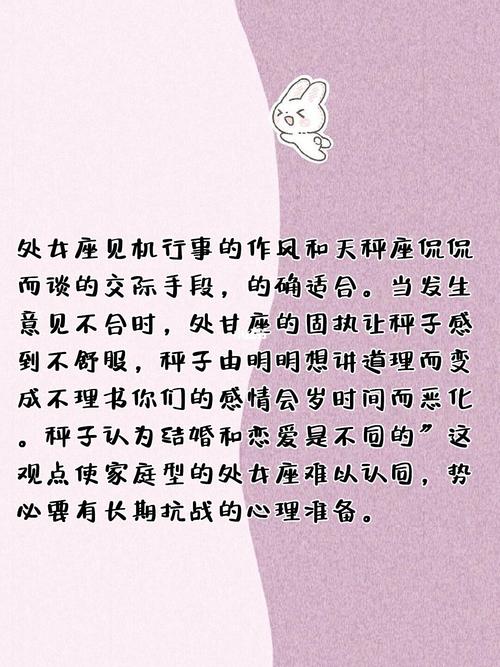 处女座见机行事的作风和天秤座侃侃
而谈的交际手段，的确适合。当发生
意见不合时，处甘座的固执让秤子感
到不舒服，秤子由明明想讲道理而变
成不理书你们的感情会岁时间而恶化
。秤子认为结婚和恋爱是不同的”这
观点使家庭型的处女座难以认同，势
必要有长期抗战的心理准备。